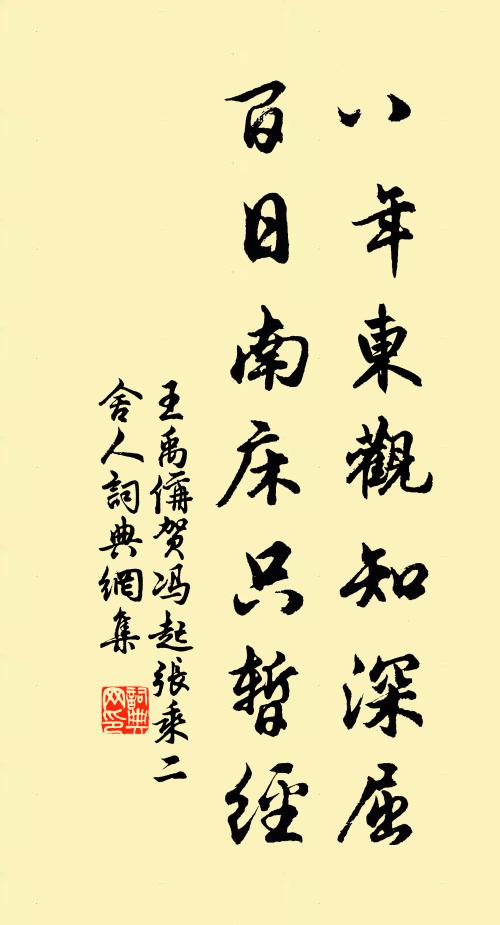 八年東觀知深屈
百日南床只暫經
王禹偁贺冯起張乘二
舍人詞典網集
詞典网印